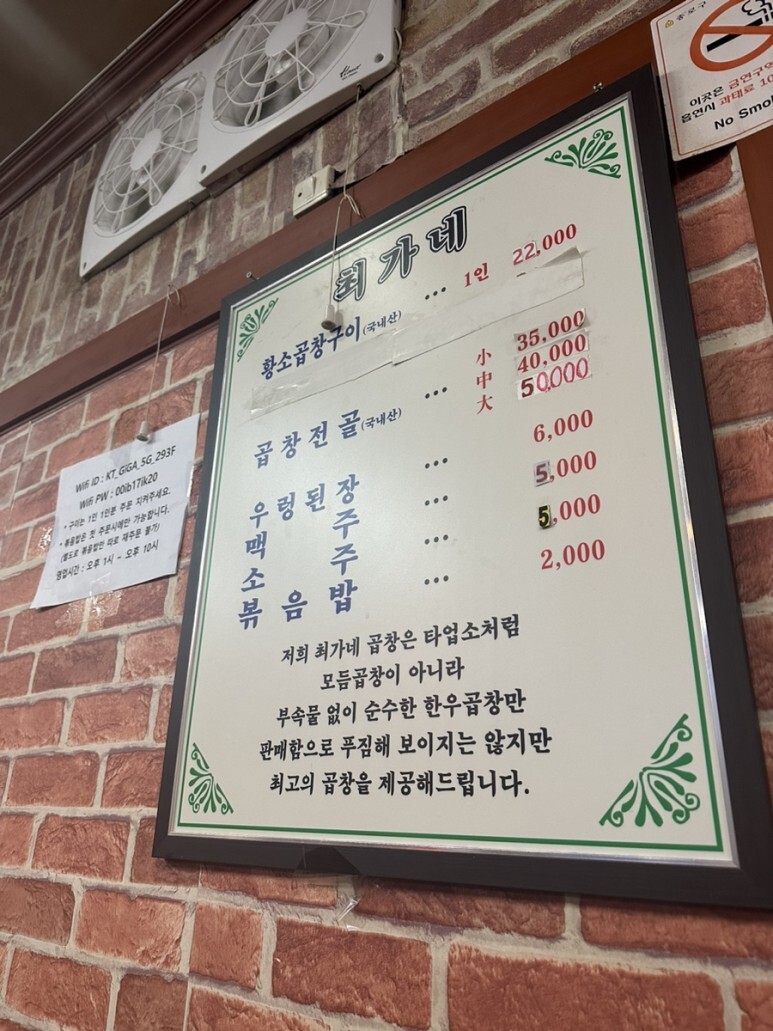 종로구
이곳은 금연구역
흡연시 과태료 10
No Smok
최가네
황소곱창구이(국내산) ... 1인 22,000
곱창전골(국내산) ... 小 35,000
中 40,000
大 50,000
우렁된장 ... 6,000
맥주 ... 5,000
소주 ... 5,000
볶음밥 ... 2,000
저희 최가네 곱창은 타업소처럼
모듬곱창이 아니라
부속물 없이 순수한 한우곱창만
판매함으로 푸짐해 보이지는 않지만
최고의 곱창을 제공해드립니다.
Wifi ID : KT_GiGA_5G_293F
Wifi PW : 00ib17ik20
* 구이는 1인 1인분 주문 지켜주세요.
* 볶음밥은 첫 주문시에만 가능합니다.
(별도로 볶음밥만 따로 재주문 불가)
영업시간 : 오후 1시 ~ 오후 10시